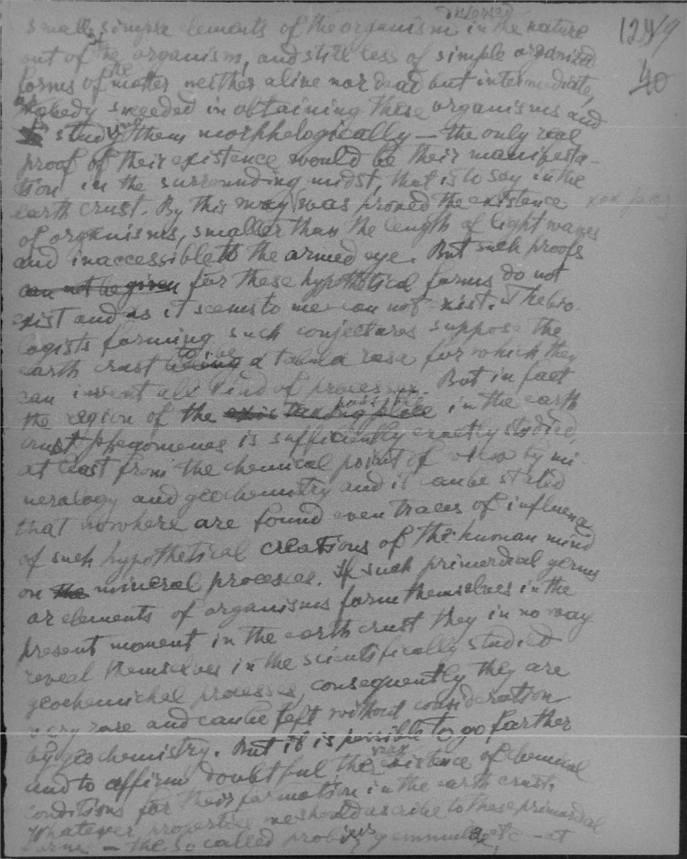 small, simple elements of the organism in the nature
out of the organism, and still less of simple organized
forms of the matter neither alive nor dead but intermediate,
Nobody succeeded in obtaining these organisms and
study them morphologically — the only real
proof of their existence would be their manifesta-
tion in the surrounding midst, that is to say in the
earth crust. By this way was proved the existence
of organisms, smaller than the length of light waves
and inaccessible to the armed eye. But such proofs
can not be given for these hypothetical forms do not
exist and as it seems to me can not exist. The bio-
logists forming such conjectures suppose the
earth crust to be a tabula rasa for which they
can invent all kind of processes. But in fact
the region of the possible in the earth
crust phenomenes is sufficiently exactly studied,
at least from the chemical point of view by mi-
neralogy and geochemistry and it can be stated
that nowhere are found even traces of influence
of such hypothetical creations of the human mind
on the mineral processes. If such primordial germs
or elements of organisms form themselves in the
present moment in the earth crust they in no way
reveal themselves in the scientifically studied
geochemichal processes, consequently they are
very rare and can be left without consideration
by geochemistry. But it is possible to go farther
and to affirm doubtful the very existence of chemical
conditions for their formation in the earth crust.
Whatever properties we should ascribe to these primordial
forms — the so called etc — at
1249
40